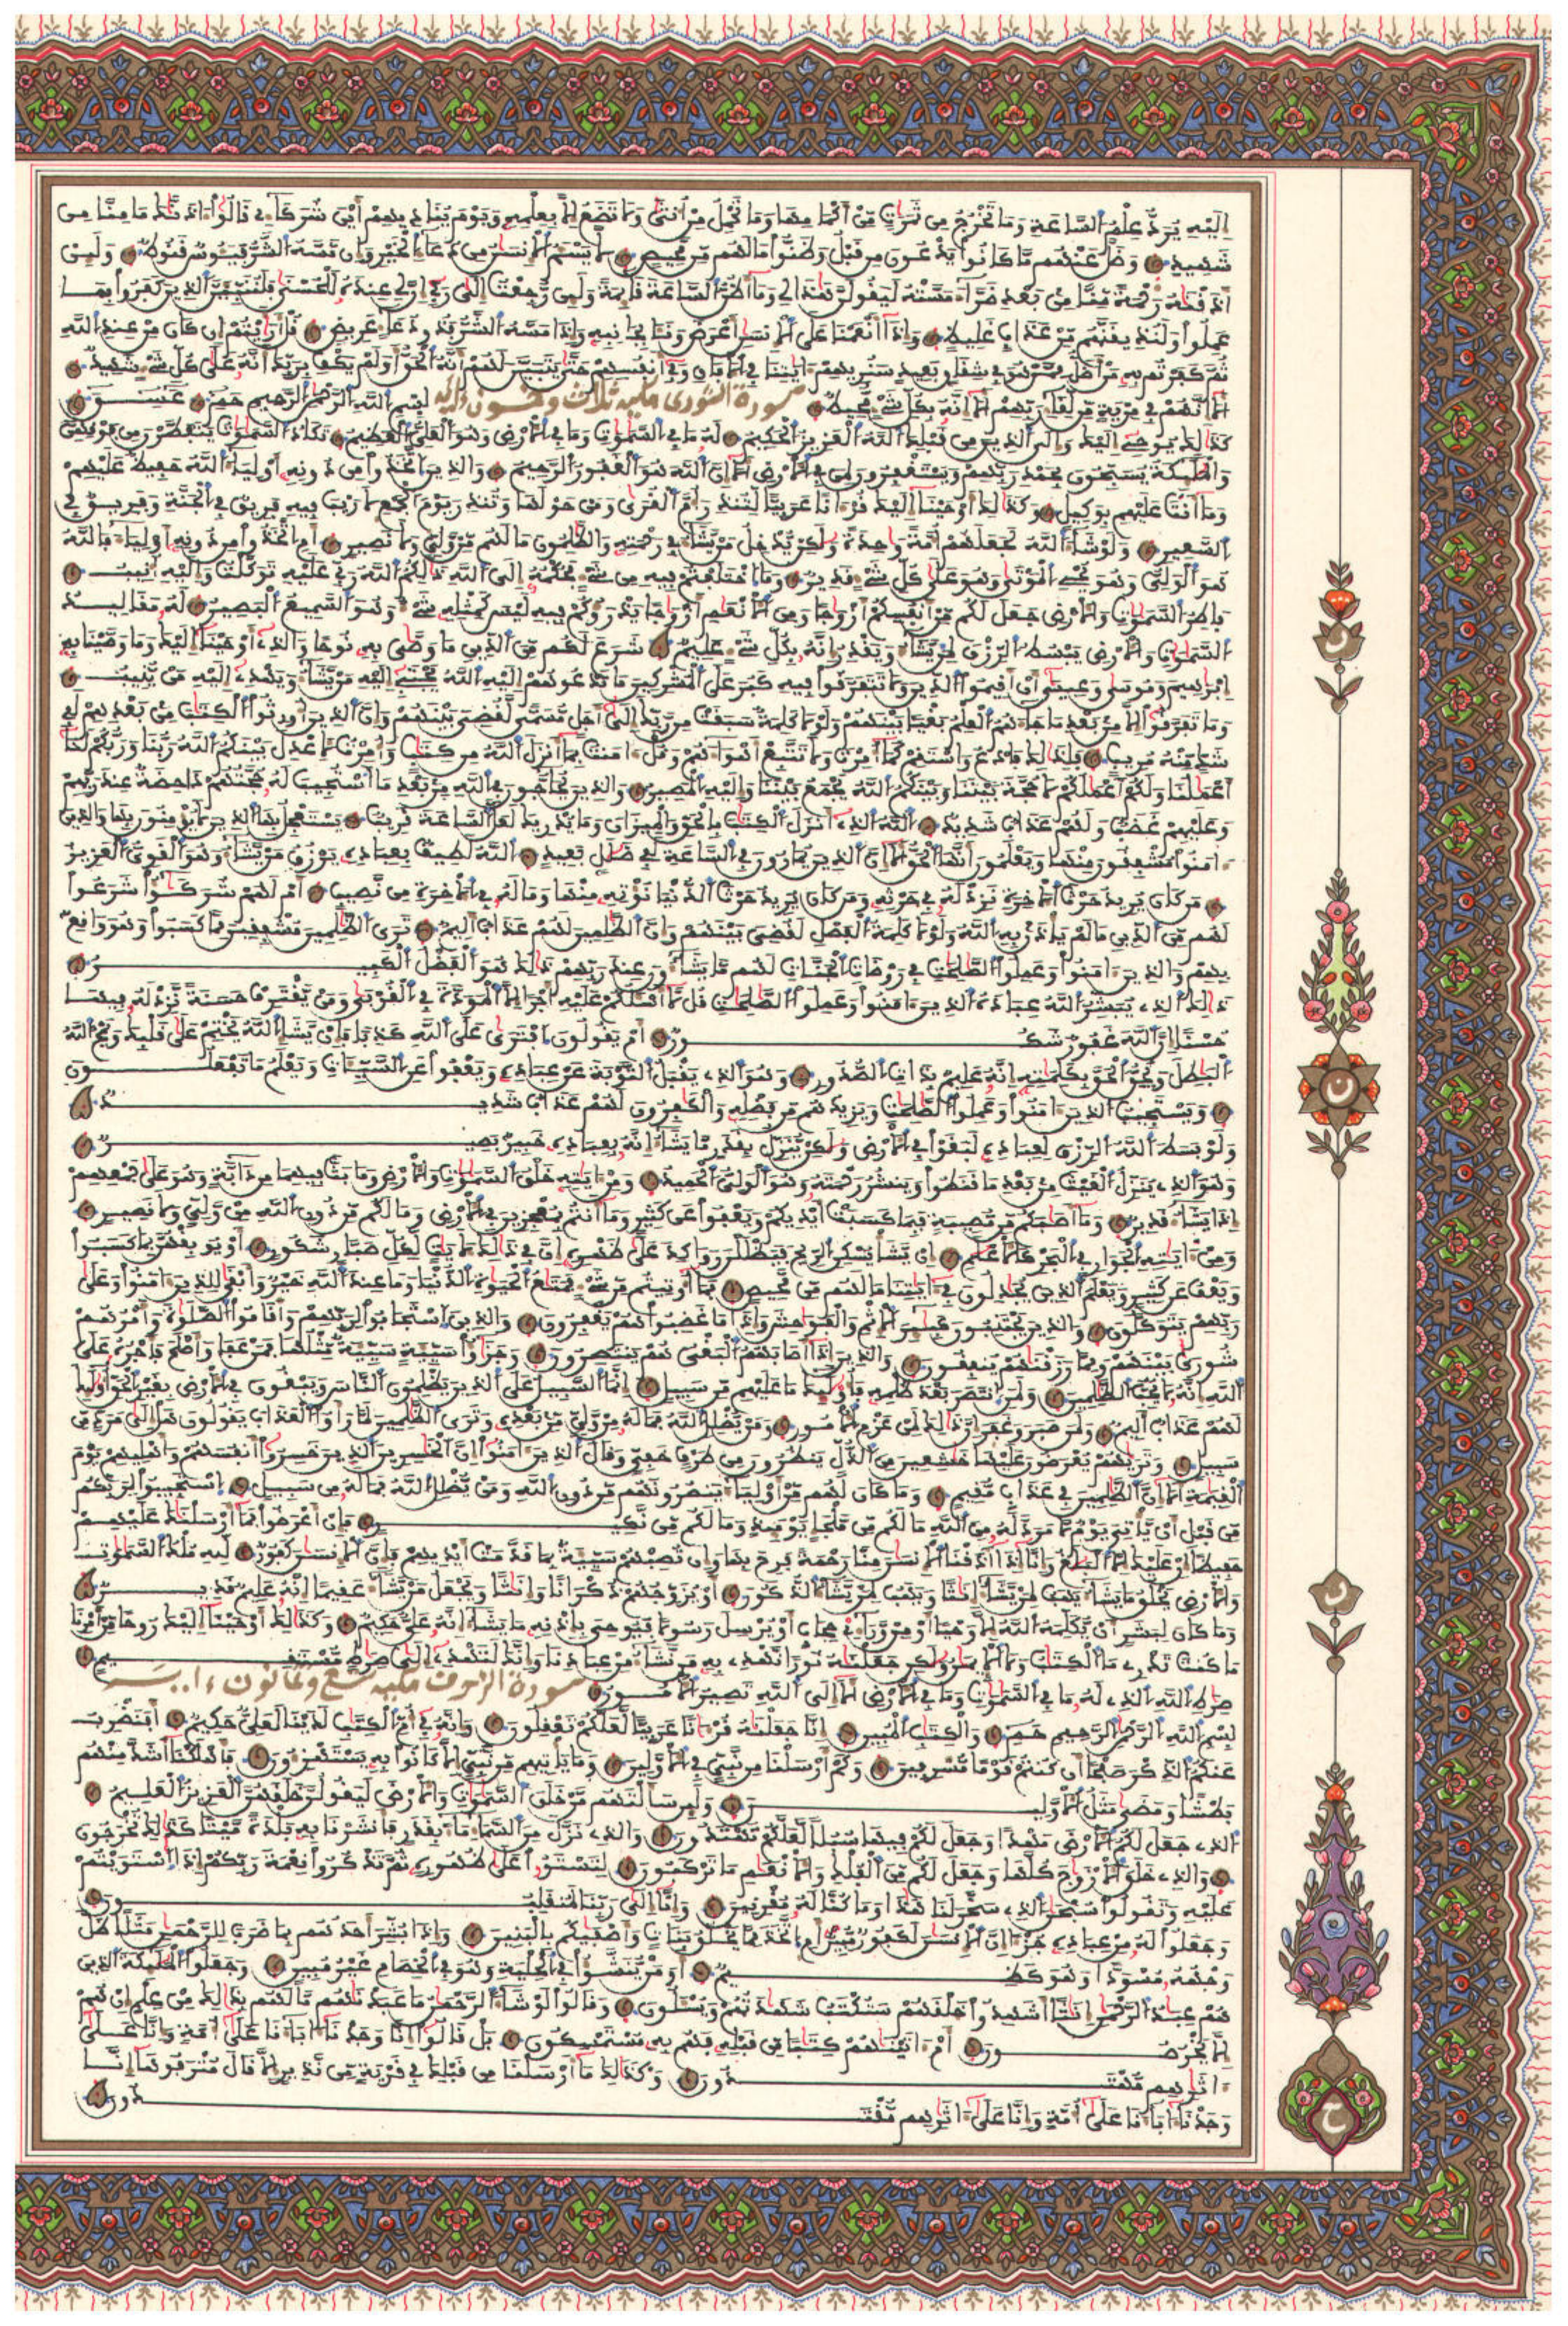 إليه يرد علم الساعة وما تخرج من ثمرات من أكمامها وما تحمل من أنثى ولا تضع إلا بعلمه ويوم يناديهم أين شركاءي قالوا ءاذناك ما منا من
شهيد وضل عنهم ما كانوا يدعون من قبل وظنوا ما لهم من محيص لا يسئم الانسان من دعاء الخير وإن مسه الشر فيئوس قنوط ولئن
أذقناه رحمة منا من بعد ضراء مسته ليقولن هذا لي وما أظن الساعة قائمة ولئن رجعت إلى ربي إن لي عنده للحسنى فلننبئن الذين كفروا بما
عملوا ولنذيقنهم من عذاب غليظ وإذا أنعمنا على الانسان أعرض ونئا بجانبه وإذا مسه الشر فذو دعاء عريض قل أرأيتم إن كان من عند الله
ثم كفرتم به من أضل ممن هو في شقاق بعيد سنريهم ءاياتنا في الافاق وفي أنفسهم حتى يتبين لهم أنه الحق أولم يكف بربك أنه على كل شيء شهيد
ألا إنهم في مرية من لقاء ربهم ألا إنه بكل شيء محيط سورة الشورى مكية ثلاث وخمسون ءاية بسم الله الرحمن الرحيم حم عسق
كذلك يوحي إليك وإلى الذين من قبلك الله العزيز الحكيم له ما في السماوات وما في الارض وهو العلي العظيم تكاد السماوات يتفطرن من فوقهن
والملائكة يسبحون بحمد ربهم ويستغفرون لمن في الارض ألا إن الله هو الغفور الرحيم والذين اتخذوا من دونه أولياء الله حفيظ عليهم
وما أنت عليهم بوكيل وكذلك أوحينا إليك قرءانا عربيا لتنذر أم القرى ومن حولها وتنذر يوم الجمع لا ريب فيه فريق في الجنة وفريق في
السعير ولو شاء الله لجعلهم أمة واحدة ولكن يدخل من يشاء في رحمته والظالمون ما لهم من ولي ولا نصير أم اتخذوا من دونه أولياء فالله
هو الولي وهو يحيي الموتى وهو على كل شيء قدير وما اختلفتم فيه من شيء فحكمه إلى الله ذلكم الله ربي عليه توكلت وإليه أنيب
فاطر السماوات والارض جعل لكم من أنفسكم أزواجا ومن الانعام أزواجا يذرؤكم فيه ليس كمثله شيء وهو السميع البصير له مقاليد
السماوات والارض يبسط الرزق لمن يشاء ويقدر إنه بكل شيء عليم شرع لكم من الدين ما وصى به نوحا والذي أوحينا إليك وما وصينا به
إبراهيم وموسى وعيسى أن أقيموا الدين ولا تتفرقوا فيه كبر على المشركين ما تدعوهم إليه الله يجتبي إليه من يشاء ويهدي إليه من ينيب
وما تفرقوا إلا من بعد ما جاءهم العلم بغيا بينهم ولولا كلمة سبقت من ربك إلى أجل مسمى لقضي بينهم وإن الذين أورثوا الكتاب من بعدهم لفي
شك منه مريب فلذلك فادع واستقم كما أمرت ولا تتبع أهواءهم وقل ءامنت بما أنزل الله من كتاب وأمرت لأعدل بينكم الله ربنا وربكم لنا
أعمالنا ولكم أعمالكم لا حجة بيننا وبينكم الله يجمع بيننا وإليه المصير والذين يحاجون في الله من بعد ما استجيب له حجتهم داحضة عند ربهم
وعليهم غضب ولهم عذاب شديد الله الذي أنزل الكتاب بالحق والميزان وما يدريك لعل الساعة قريب يستعجل بها الذين لا يومنون بها والذين
ءامنوا مشفقون منها ويعلمون أنها الحق ألا إن الذين يمارون في الساعة لفي ضلال بعيد الله لطيف بعباده يرزق من يشاء وهو القوي العزيز
من كان يريد حرث الاخرة نزد له في حرثه ومن كان يريد حرث الدنيا نؤته منها وما له في الاخرة من نصيب أم لهم شركاء شرعوا
لهم من الدين ما لم ياذن به الله ولولا كلمة الفصل لقضي بينهم وإن الظالمين لهم عذاب أليم ترى الظالمين مشفقين مما كسبوا وهو واقع
بهم والذين ءامنوا وعملوا الصالحات في روضات الجنات لهم ما يشاءون عند ربهم ذلك هو الفضل الكبير
ذلك الذي يبشر الله عباده الذين ءامنوا وعملوا الصالحات قل لا أسئلكم عليه أجرا إلا المودة في القربى ومن يقترف حسنة نزد له فيها
حسنا إن الله غفور شكور أم يقولون افترى على الله كذبا فإن يشإ الله يختم على قلبك ويمح الله
الباطل ويحق الحق بكلماته إنه عليم بذات الصدور وهو الذي يقبل التوبة عن عباده ويعفوا عن السيئات ويعلم ما تفعلون
ويستجيب الذين ءامنوا وعملوا الصالحات ويزيدهم من فضله والكافرون لهم عذاب شديد
ولو بسط الله الرزق لعباده لبغوا في الارض ولكن ينزل بقدر ما يشاء إنه بعباده خبير بصير
وهو الذي ينزل الغيث من بعد ما قنطوا وينشر رحمته وهو الولي الحميد ومن ءاياته خلق السماوات والارض وما بث فيهما من دابة وهو على جمعهم
إذا يشاء قدير وما أصابكم من مصيبة فبما كسبت أيديكم ويعفوا عن كثير وما أنتم بمعجزين في الارض وما لكم من دون الله من ولي ولا نصير
ومن ءاياته الجوار في البحر كالاعلام إن يشأ يسكن الريح فيظللن رواكد على ظهره إن في ذلك لآيات لكل صبار شكور أو يوبقهن بما كسبوا
ويعف عن كثير ويعلم الذين يجادلون في ءاياتنا ما لهم من محيص فما أوتيتم من شيء فمتاع الحياة الدنيا وما عند الله خير وأبقى للذين ءامنوا وعلى
ربهم يتوكلون والذين يجتنبون كبائر الاثم والفواحش وإذا ما غضبوا هم يغفرون والذين استجابوا لربهم وأقاموا الصلاة وأمرهم
شورى بينهم ومما رزقناهم ينفقون والذين إذا أصابهم البغي هم ينتصرون وجزاؤا سيئة سيئة مثلها فمن عفا وأصلح فأجره على
الله إنه لا يحب الظالمين ولمن انتصر بعد ظلمه فأولئك ما عليهم من سبيل إنما السبيل على الذين يظلمون الناس ويبغون في الارض بغير الحق أولئك
لهم عذاب أليم ولمن صبر وغفر إن ذلك لمن عزم الامور ومن يضلل الله فما له من ولي من بعده وترى الظالمين لما رأوا العذاب يقولون هل إلى مرد من
سبيل وتراهم يعرضون عليها خاشعين من الذل ينظرون من طرف خفي وقال الذين ءامنوا إن الخاسرين الذين خسروا أنفسهم وأهليهم يوم
القيامة ألا إن الظالمين في عذاب مقيم وما كان لهم من أولياء ينصرونهم من دون الله ومن يضلل الله فما له من سبيل استجيبوا لربكم
من قبل أن ياتي يوم لا مرد له من الله ما لكم من ملجإ يومئذ وما لكم من نكير فإن أعرضوا فما أرسلناك عليهم
حفيظا إن عليك إلا البلاغ وإنا إذا أذقنا الانسان منا رحمة فرح بها وإن تصبهم سيئة بما قدمت أيديهم فإن الانسان كفور لله ملك السماوات
والارض يخلق ما يشاء يهب لمن يشاء إناثا ويهب لمن يشاء الذكور أو يزوجهم ذكرانا وإناثا ويجعل من يشاء عقيما إنه عليم قدير
وما كان لبشر أن يكلمه الله إلا وحيا أو من وراءي حجاب أو يرسل رسولا فيوحي بإذنه ما يشاء إنه علي حكيم وكذلك أوحينا إليك روحا من أمرنا
ما كنت تدري ما الكتاب ولا الايمان ولكن جعلناه نورا نهدي به من نشاء من عبادنا وإنك لتهدي إلى صراط مستقيم
صراط الله الذي له ما في السماوات وما في الارض ألا إلى الله تصير الامور سورة الزخرف مكية تسع وثمانون ءاية
بسم الله الرحمن الرحيم حم والكتاب المبين إنا جعلناه قرءانا عربيا لعلكم تعقلون وإنه في أم الكتاب لدينا لعلي حكيم أفنضرب
عنكم الذكر صفحا أن كنتم قوما مسرفين وكم أرسلنا من نبيء في الاولين وما ياتيهم من نبيء إلا كانوا به يستهزءون فأهلكنا أشد منهم
بطشا ومضى مثل الاولين ولئن سألتهم من خلق السماوات والارض ليقولن خلقهن العزيز العليم
الذي جعل لكم الارض مهدا وجعل لكم فيها سبلا لعلكم تهتدون والذي نزل من السماء ماء بقدر فأنشرنا به بلدة ميتا كذلك تخرجون
والذي خلق الازواج كلها وجعل لكم من الفلك والانعام ما تركبون لتستووا على ظهوره ثم تذكروا نعمة ربكم إذا استويتم
عليه وتقولوا سبحان الذي سخر لنا هذا وما كنا له مقرنين وإنا إلى ربنا لمنقلبون
وجعلوا له من عباده جزءا إن الانسان لكفور مبين أم اتخذ مما يخلق بنات وأصفاكم بالبنين وإذا بشر أحدهم بما ضرب للرحمن مثلا ظل
وجهه مسودا وهو كظيم أومن ينشؤا في الحلية وهو في الخصام غير مبين وجعلوا الملائكة الذين
هم عباد الرحمن إناثا أشهدوا خلقهم ستكتب شهادتهم ويسئلون وقالوا لو شاء الرحمن ما عبدناهم ما لهم بذلك من علم إن هم
إلا يخرصون أم ءاتيناهم كتابا من قبله فهم به مستمسكون بل قالوا إنا وجدنا ءاباءنا على أمة وإنا على
ءاثارهم مهتدون وكذلك ما أرسلنا من قبلك في قرية من نذير إلا قال مترفوها إنا
وجدنا ءاباءنا على أمة وإنا على ءاثارهم مقتدون